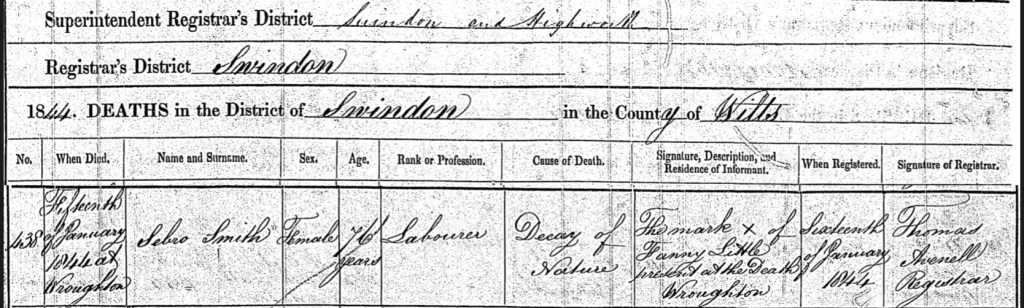 Superintendent Registrar's District Swindon and Highworth
Registrar's District Swindon
1844. DEATHS in the District of Swindon in the County of Wilts
No. When Died. Name and Surname. Sex. Age. Rank or Profession. Cause of Death. Signature, Description, and Residence of Informant. When Registered. Signature of Registrar.
438 Fifteenth of January 1844 at Wroughton
Sebro Smith
Female
76 years
Labourer
Decay of Nature
The mark x of Fanny Little present at the Death Wroughton
Sixteenth of January 1844
Thomas Avenell Registrar